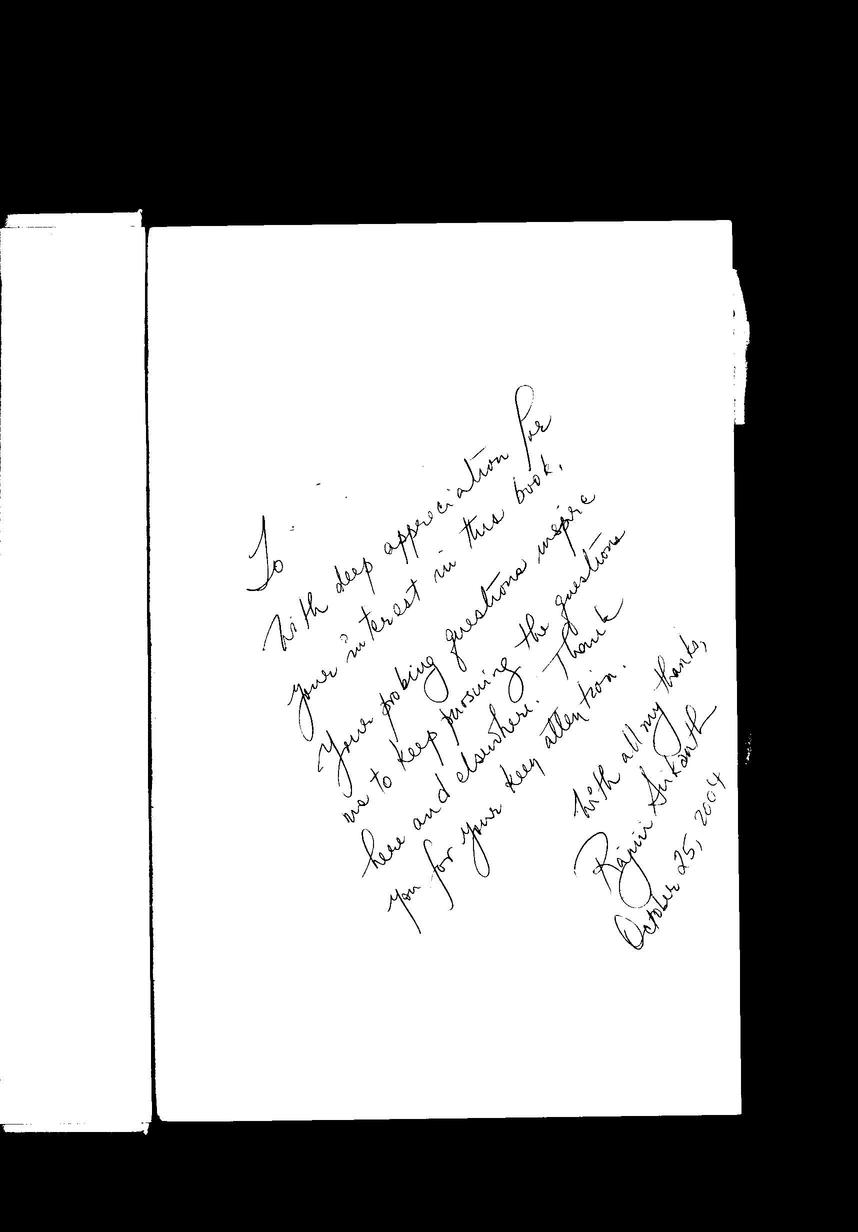 To
With deep appreciation for
your interest in this book.
Your probing questions inspire
us to keep pursuing the questions
here and elsewhere. Thank
you for your keen attention.
With all my thanks,
Rajini Srikanth
October 25, 2004